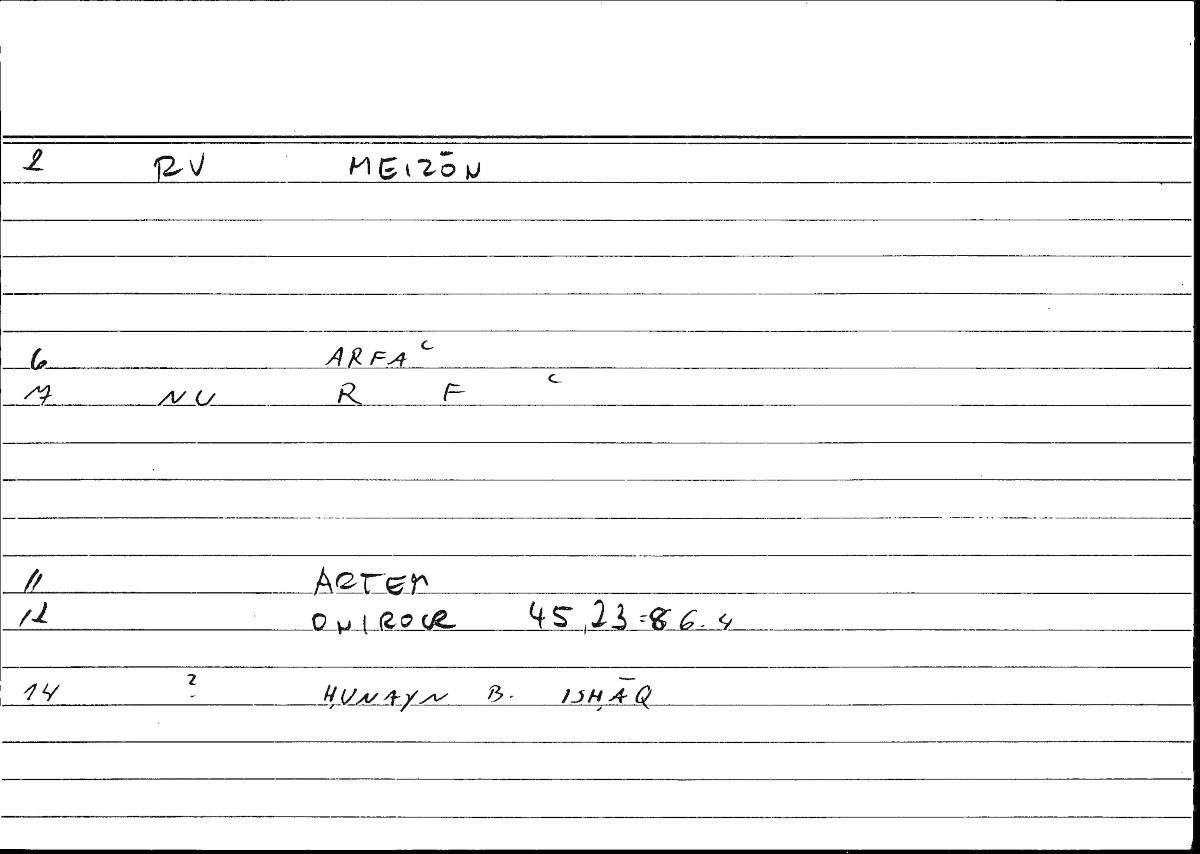 2 RV MEIZŌN
6 ARFAʿ
7 NU R F ʿ
11 ARTEM
12 ONIROCR 45,23=86.4
14 ? ḤUNAYN B. ISḤĀQ